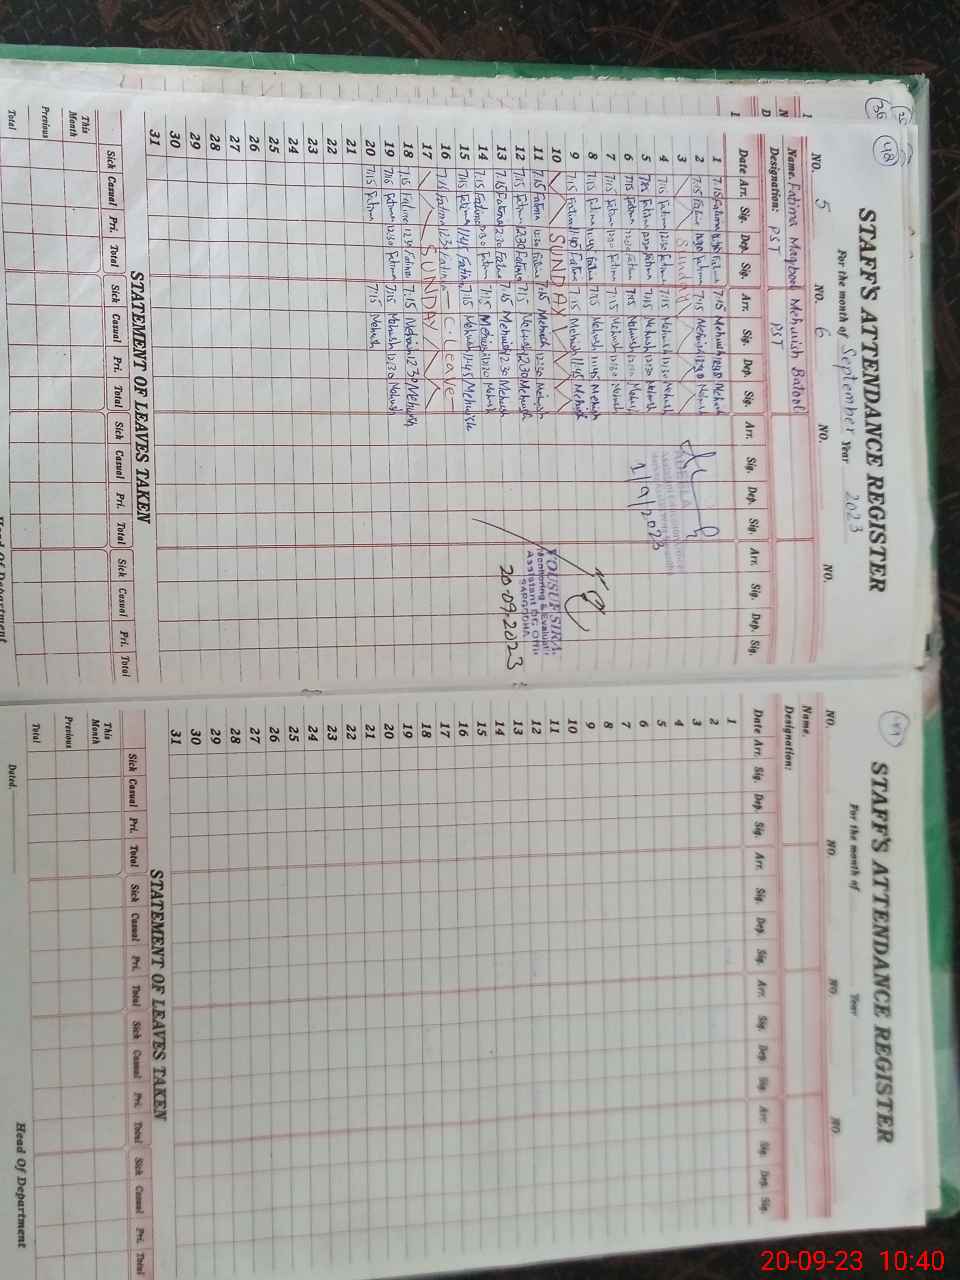 48
STAFF'S ATTENDANCE REGISTER
For the month of September Year 2023
NO. 5 NO. 6 NO. NO.
Name. Fatima Maqbool Mehwish Batool
Designation: PST PST
Date Arr. Sig. Dep. Sig. Arr. Sig. Dep. Sig. Arr. Sig. Dep. Sig. Arr. Sig. Dep. Sig.
1 7:15 Fatima 12:30 Fatima 7:15 Mehwish 12:30 Mehwish
2 7:15 Fatima 12:30 Fatima 7:15 Mehwish 12:30 Mehwish
3 Sunday
4 7:15 Fatima 12:30 Fatima 7:15 Mehwish 12:30 Mehwish
5 7:15 Fatima 12:30 Fatima 7:15 Mehwish 12:30 Mehwish
6 7:15 Fatima 12:30 Fatima 7:15 Mehwish 12:30 Mehwish
7 7:15 Fatima 12:30 Fatima 7:15 Mehwish 12:30 Mehwish
8 7:15 Fatima 11:45 Fatima 7:15 Mehwish 11:45 Mehwish
9 7:15 Fatima 11:45 Fatima 7:15 Mehwish 11:45 Mehwish
10 SUNDAY
11 7:15 Fatima 12:30 Fatima 7:15 Mehwish 12:30 Mehwish
12 7:15 Fatima 12:30 Fatima 7:15 Mehwish 12:30 Mehwish
13 7:15 Fatima 12:30 Fatima 7:15 Mehwish 12:30 Mehwish
14 7:15 Fatima 12:30 Fatima 7:15 Mehwish 12:30 Mehwish
15 7:15 Fatima 11:45 Fatima 7:15 Mehwish 11:45 Mehwish
16 7:15 Fatima 12:30 Fatima — C. Leave —
17 SUNDAY
18 7:15 Fatima 12:30 Fatima 7:15 Mehwish 12:30 Mehwish
19 7:15 Fatima 12:30 Fatima 7:15 Mehwish 12:30 Mehwish
20 7:15 Fatima 7:15 Mehwish
21
22
23
24
25
26
27
28
29
30
31
1/9/2023
YOUSUF SIRA
Monitoring & Evaluati
Assistant DC Offic
SARGODHA
20-09-2023
STATEMENT OF LEAVES TAKEN
Sick Casual Pri. Total Sick Casual Pri. Total Sick Casual Pri. Total Sick Casual Pri. Total
This Month
Previous
Total
Head Of Department
STAFF'S ATTENDANCE REGISTER
For the month of Year
NO. NO. NO. NO.
Name.
Designation:
Date Arr. Sig. Dep. Sig. Arr. Sig. Dep. Sig. Arr. Sig. Dep. Sig. Arr. Sig. Dep. Sig.
1
2
3
4
5
6
7
8
9
10
11
12
13
14
15
16
17
18
19
20
21
22
23
24
25
26
27
28
29
30
31
STATEMENT OF LEAVES TAKEN
Sick Casual Pri. Total Sick Casual Pri. Total Sick Casual Pri. Total Sick Casual Pri. Total
This Month
Previous
Total
Dated.
Head Of Department
20-09-23 10:40